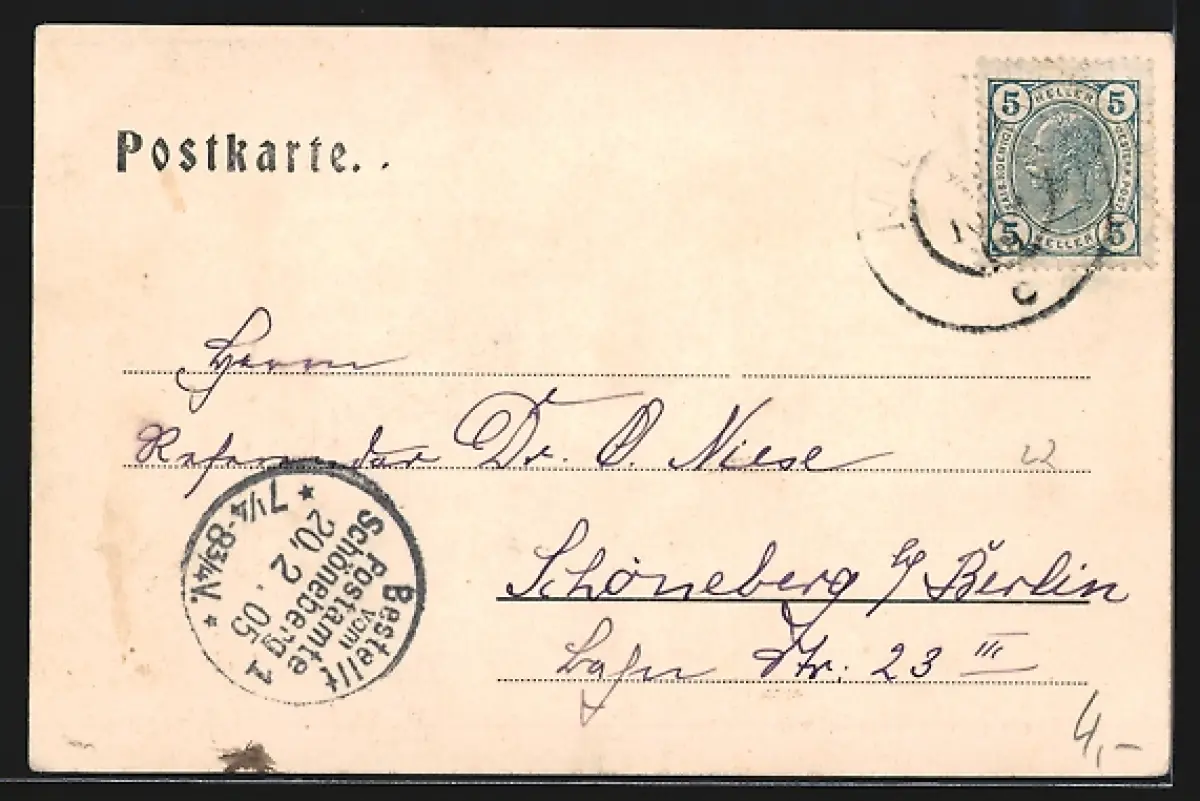 Postkarte.
5 HELLER 5
KAIS. KOENIGL. OESTERR. POST
5 HELLER 5
C
Herrn
Referendar Dr. O. Niese
22
Schöneberg b/ Berlin
Bahn Str: 23 III
Bestellt
vom
Postamte 1
Schöneberg
20, 2. 05
* 7 1/4-8 3/4 V. *
4,-